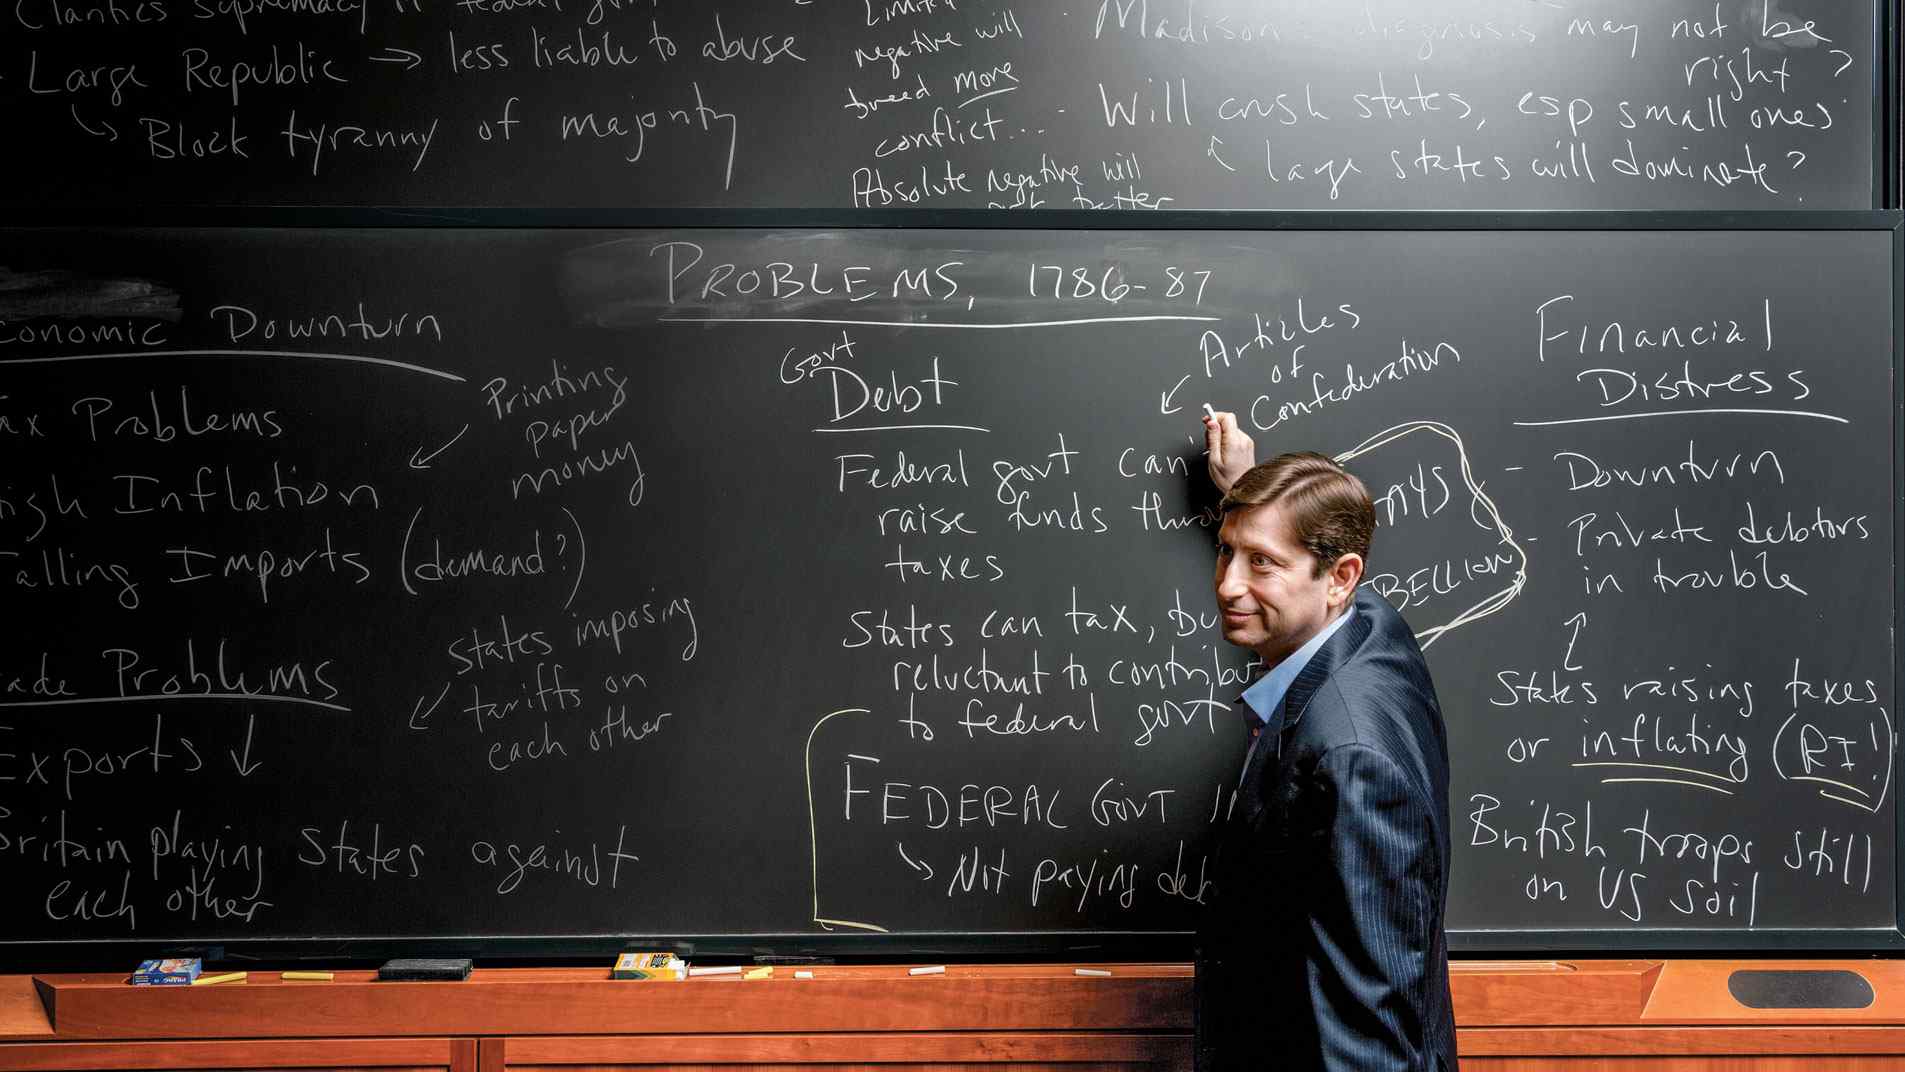 Clarifies Supremacy
Large Republic → less liable to abuse
↳ Block tyranny of majority
Limited
negative will
breed more
conflict...
Absolute negative will
better
Madison - diagnosis may not be
right?
- Will crush states, esp small ones
↖ large states will dominate?
PROBLEMS, 1786-87
conomic Downturn
ax Problems
igh Inflation
alling Imports (demand?)
Printing
paper
money
ade Problems
Exports ↓
States imposing
tariffs on
each other
Britain playing States against
each other
Govt
Debt
Federal govt can'
raise funds thro
taxes
States can tax, bu
reluctant to contribu
to federal govt
FEDERAL GOVT I
↳ Not paying deb
Articles
of
Confederation
AYS
EBELLION
Financial
Distress
- Downturn
- Private debtors
in trouble
States raising taxes
or inflating (RI!)
British troops still
on US soil